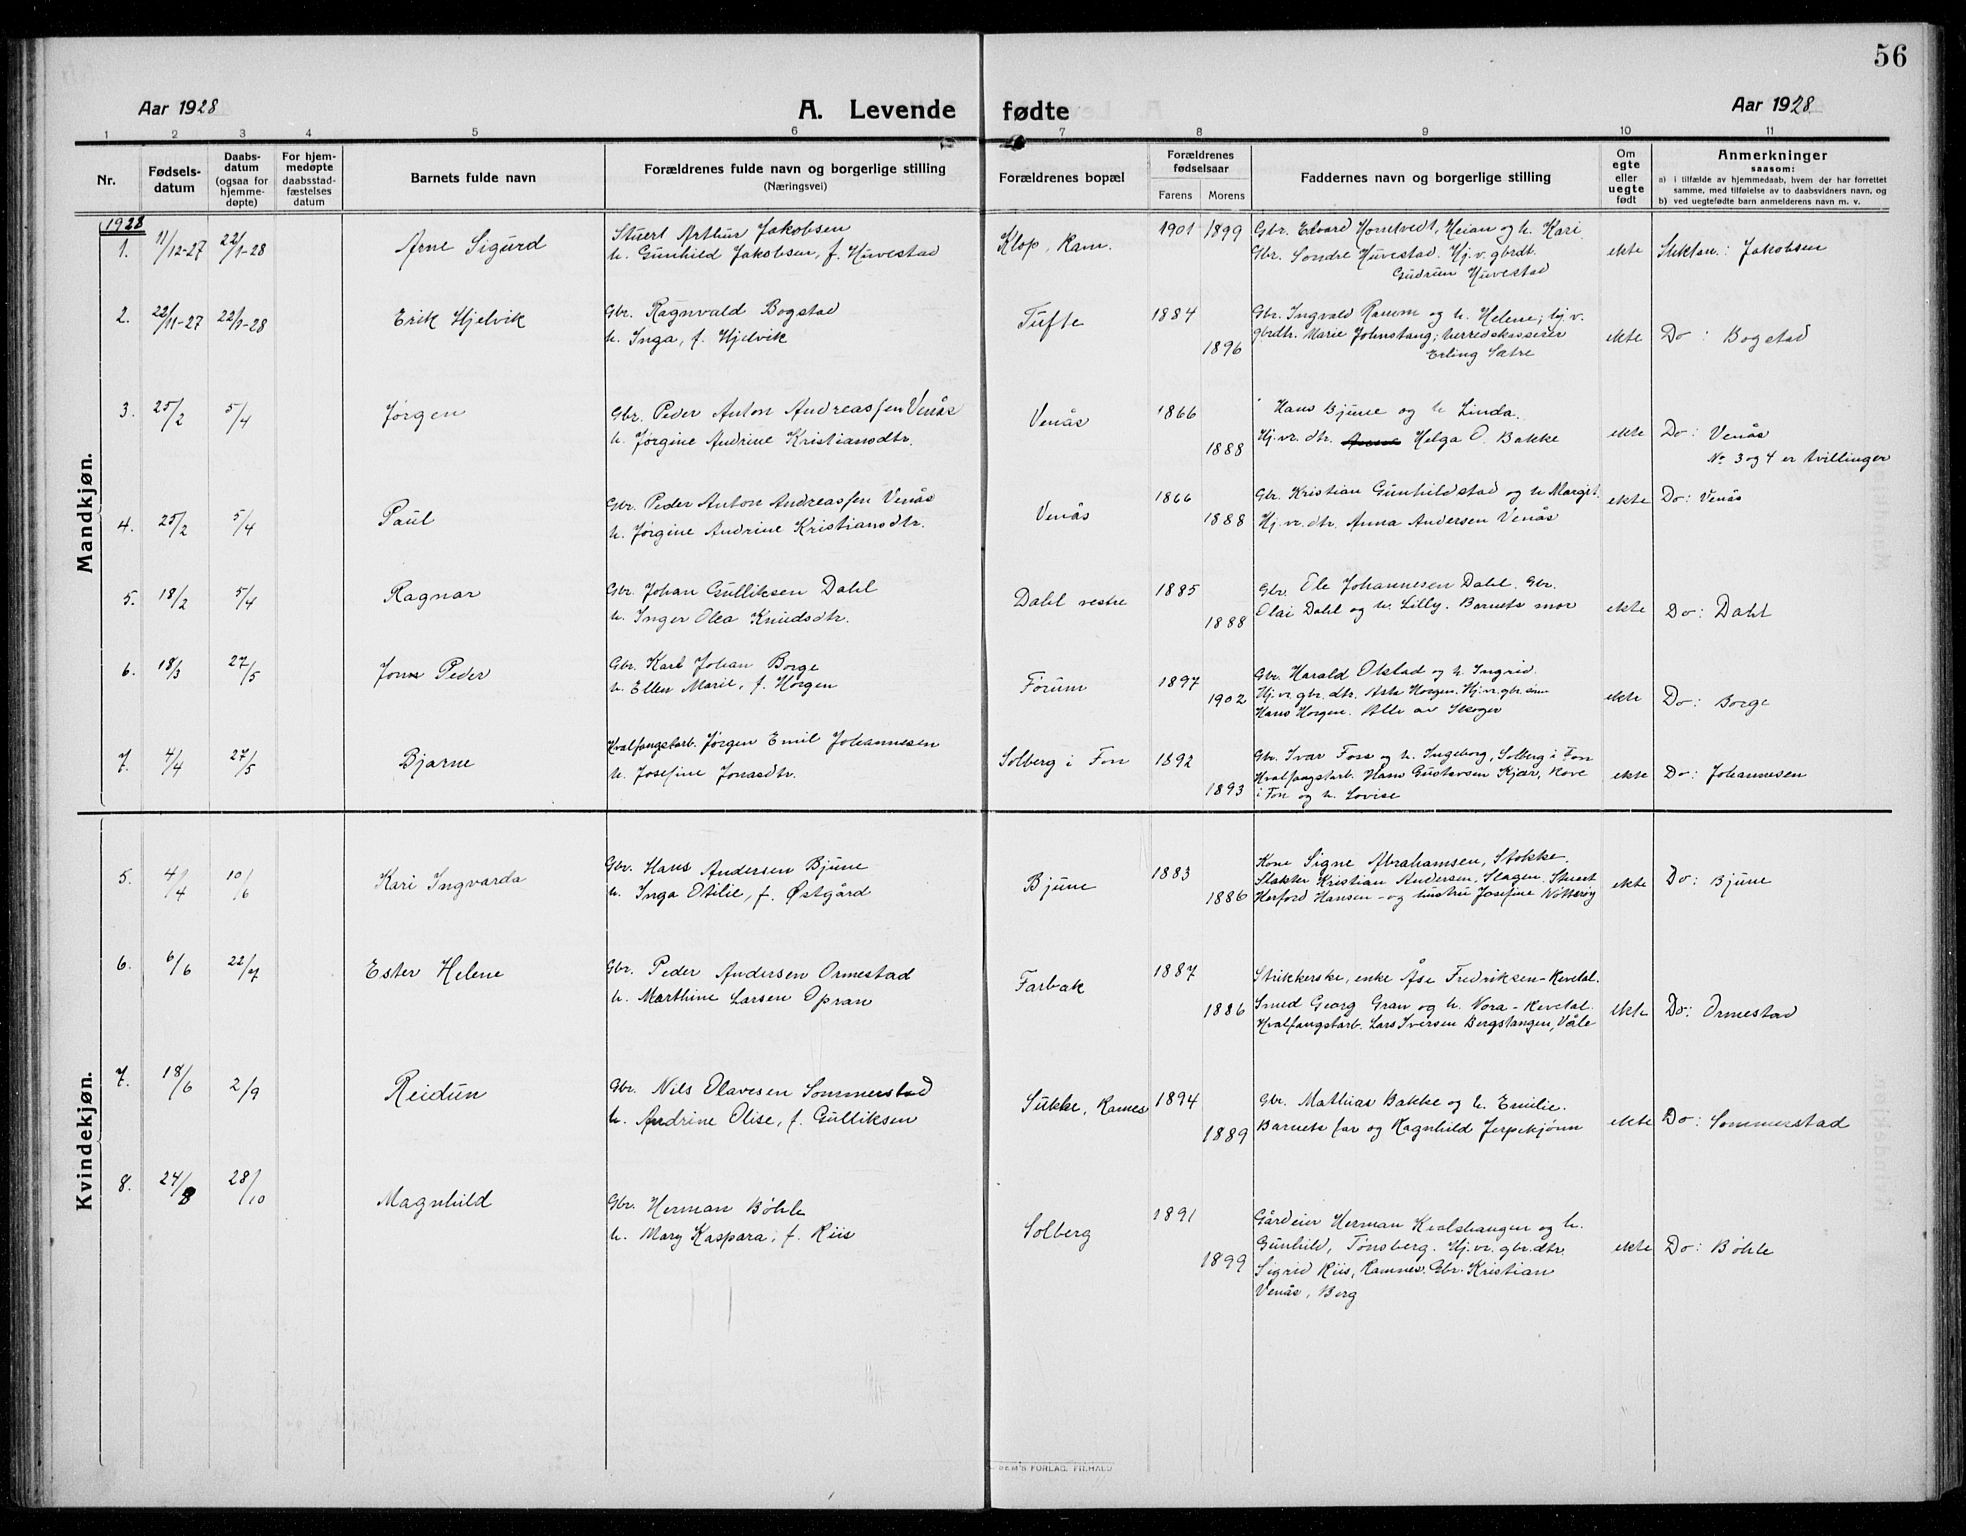 56
Aar 1928
A. Levende fødte
Aar 1928
1 2 3 4 5 6 7 8 9 10 11
Nr.
Fødsels-
datum
Daabs-
datum
(ogsaa for
hjemme-
døpte)
For hjem-
medøpte
daabsstad-
fæstelses
datum
Barnets fulde navn
Forældrenes fulde navn og borgerlige stilling
(Næringsvei)
Forældrenes bopæl
Forældrenes
fødselsaar
Farens Morens
Faddernes navn og borgerlige stilling
Om
egte
eller
uegte
født
Anmerkninger
saasom:
a) i tilfælde av hjemmedaab, hvem der har forrettet
samme, med tilføielse av to daabsvidners navn, og
b) ved uegtefødte barn anmelderens navn m. v.
Mandkjøn.
1928
1. 11/12-27 22/1-28 Arne Sigurd
Stuert Arthur Jakobsen
h. Gunhild Jakobsen, f. Huvestad
Klop, Ram. 1901 1899
Gbr. Edvard Homtvedt, Heian og h. Kari
Gbr. Sondre Huvestad. Hj.v. gbrdt.
Gudrun Huvestad
ekte Jakobsen
2. 22/11-27 22/1-28 Erik Hjelvik
Gbr. Ragnvald Bogstad
h. Inga, f. Hjelvik
Tufte 1884 1896
Gbr. Ingvald Ramm og h. Helene; hj.v.
gbrdtr. Marie Johnstang; herredskasserer
Erling Sætre
ekte Do: Bogstad
3. 25/2 5/4 Jørgen
Gbr. Peder Anton Andreassen Venås
h. Jørgine Andrine Kristiansdtr.
Venås 1866 1888
Hans Bjune og h Linda.
Hj.vr. dtr. Helga O. Bakke
ekte Do: Venås
No 3 og 4 er tvillinger
4. 25/2 5/4 Paul
Gbr. Peder Anton Andreassen Venås
h. Jørgine Andrine Kristiansdtr.
Venås 1866 1888
Gbr. Kristian Gunhildstad og h Margit.
Hj.vr. dtr. Anna Andersen Venås
ekte Do: Venås
5. 18/2 5/4 Ragnar
Gbr. Johan Gulliksen Dahl
h. Inger Olea Knudsdtr.
Dahl vestre 1885 1888
Gbr. Ole Johannesen Dahl. Gbr.
Olai Dahl og h. Lilly. Barnets mor
ekte Do: Dahl
6. 18/3 27/5 Jonn Peder
Gbr. Karl Johan Borge
h. Ellen Marie, f. Horgen
Forum 1897 1902
Gbr. Harald Olstad og h Ingrid.
Hj.vr. gbr. dtr. Asta Horgen. Hj.vr. gbr. sønn
Hans Horgen. Alle av Skoger
ekte Do: Borge
7. 4/4 27/5 Bjarne
Hvalfangstarb. Jørgen Emil Johannessen
h. Josefine Jonasdtr.
Solberg i Fon 1892 1893
Gbr. Ivar Fon og h. Ingeborg, Solberg i Fon
Hvalfangstarb. Hans Gustavsen Kjær, Hove
i Fon og h. Lovise
ekte Do: Johannesen
Kvindekjøn.
5. 4/4 10/6 Kari Ingvarda
Gbr. Hans Andersen Bjune
h. Inga Otilie, f. Østgård
Bjune 1883 1886
Kone Signe Abrahamsen, Stokke.
Slakter Kristian Andersen, Slagen, Stuert
Herford Hansen - og hustru Josefine Nøtterøy
ekte Do: Bjune
6. 6/6 22/7 Ester Helene
Gbr. Peder Andersen Ormestad
h. Marthine Larsen Opran
Farbak 1887 1886
Strikkerske, enke Åse Fredriksen - Revetal.
Smed Georg Gran og h. Nora - Revetal.
Hvalfangstarb. Lars Iversen Bergstangen, Våle
ekte Do: Ormestad
7. 18/6 2/9 Reidun
Gbr. Nils Olavesen Sommerstad
h. Andrine Olise, f. Gulliksen
Sukke, Ramnes 1894 1889
Gbr. Mathias Bakke og h. Emilie.
Barnets far og Hagnhild Jerpekjønn
ekte Do: Sommerstad
8. 24/8 28/10 Magnhild
Gbr. Herman Bøhle
h. Mary Kaspara, f. Riis
Solberg 1891 1899
Gårdeier Herman Kvalshaugen og h.
Gunhild, Tønsberg. Hj.vr. gbr.dtr.
Sigrid Riis, Ramnes. Gbr. Kristian
Venås, Berg
ekte Do: Bøhle
SEM'S FORLAG, F.HALD